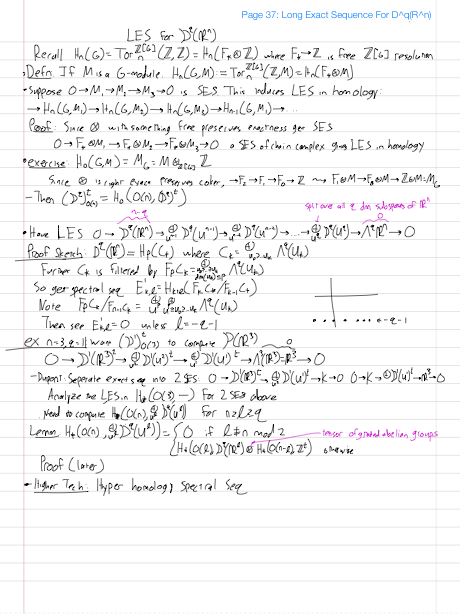 Page 37: Long Exact Sequence For D^q(R^n)
LES for D^q(ℝⁿ)
Recall Hₙ(G) = Torₙ^{ℤ[G]}(ℤ,ℤ) = Hₙ(F_*⊗ℤ) where F_*→ℤ is free ℤ[G] resolution
Defn: If M is a G-module. Hₙ(G,M) := Torₙ^{ℤ[G]}(ℤ,M) = Hₙ(F_*⊗M)
• Suppose 0→M₁→M₂→M₃→0 is SES. This induces LES in homology:
→Hₙ(G,M₁)→Hₙ(G,M₂)→Hₙ(G,M₃)→Hₙ₋₁(G,M₁)→...
Proof: Since ⊗ with something free preserves exactness get SES
0→F_*⊗M₁→F_*⊗M₂→F_*⊗M₃→0 a SES of chain complex gives LES in homology
• exercise: H₀(G,M) = M_G = M⊗_{ℤ[G]} ℤ
Since ⊗ is right exact preserves coker, →F₂→F₁→F₀→ℤ ⇝ F₁⊗M→F₀⊗M→ℤ⊗M=M_G
- Then (D^q)^t_{O(n)} = H₀(O(n), (D^q)^t)
split over all q dim subspaces of ℝⁿ
• Have LES 0→D^q(ℝⁿ)→⊕D^q(Uⁿ⁻¹)→⊕D^q(Uⁿ⁻²)→...→⊕D^q(U^q)→Λ^qℝⁿ→0
Proof Sketch: D^q(ℝⁿ) = H_p(C_*) where C_k = ⊕ Λ^q(U_k)
Further C_k is filtered by F_pC_k = ⊕ Λ^q(U_k)
So get spectral seq E¹_{k,l} = H_{k+l}(F_kC_*/F_{k-1}C_*)
Note F_pC_k/F_{p-1}C_k = ⊕ ⊕ Λ^q(U_k)
Then see E¹_{k,l} = 0 unless l = -q-1
-q-1
ex n=3, q=1 want (D¹)^t_{O(3)} to compute D(ℝ³)
0→D¹(ℝ³)^t→⊕D¹(U²)^t→⊕D¹(U¹)^t→Λ¹(ℝ³)=ℝ³→0
- Dupont: Seperate exact seq into 2 SES: 0→D¹(ℝ³)^t→⊕D¹(U²)^t→K→0 0→K→⊕D¹(U¹)^t→ℝ³→0
Analyze the LES in H_*(O(3), -) for 2 SES above
Need to compute H_*(O(n), ⊕D^q(U^l)) for n≥l≥q
Lemma H_*(O(n), ⊕D^q(U^l)) = { 0 if l≢n mod 2
H_*(O(l), D^q(ℝ^l)) ⊗ H_*(O(n-l), ℤ^t) otherwise
tensor of graded abelian groups
Proof (later)
• Higher Tech: Hyper homology Spectral Seq